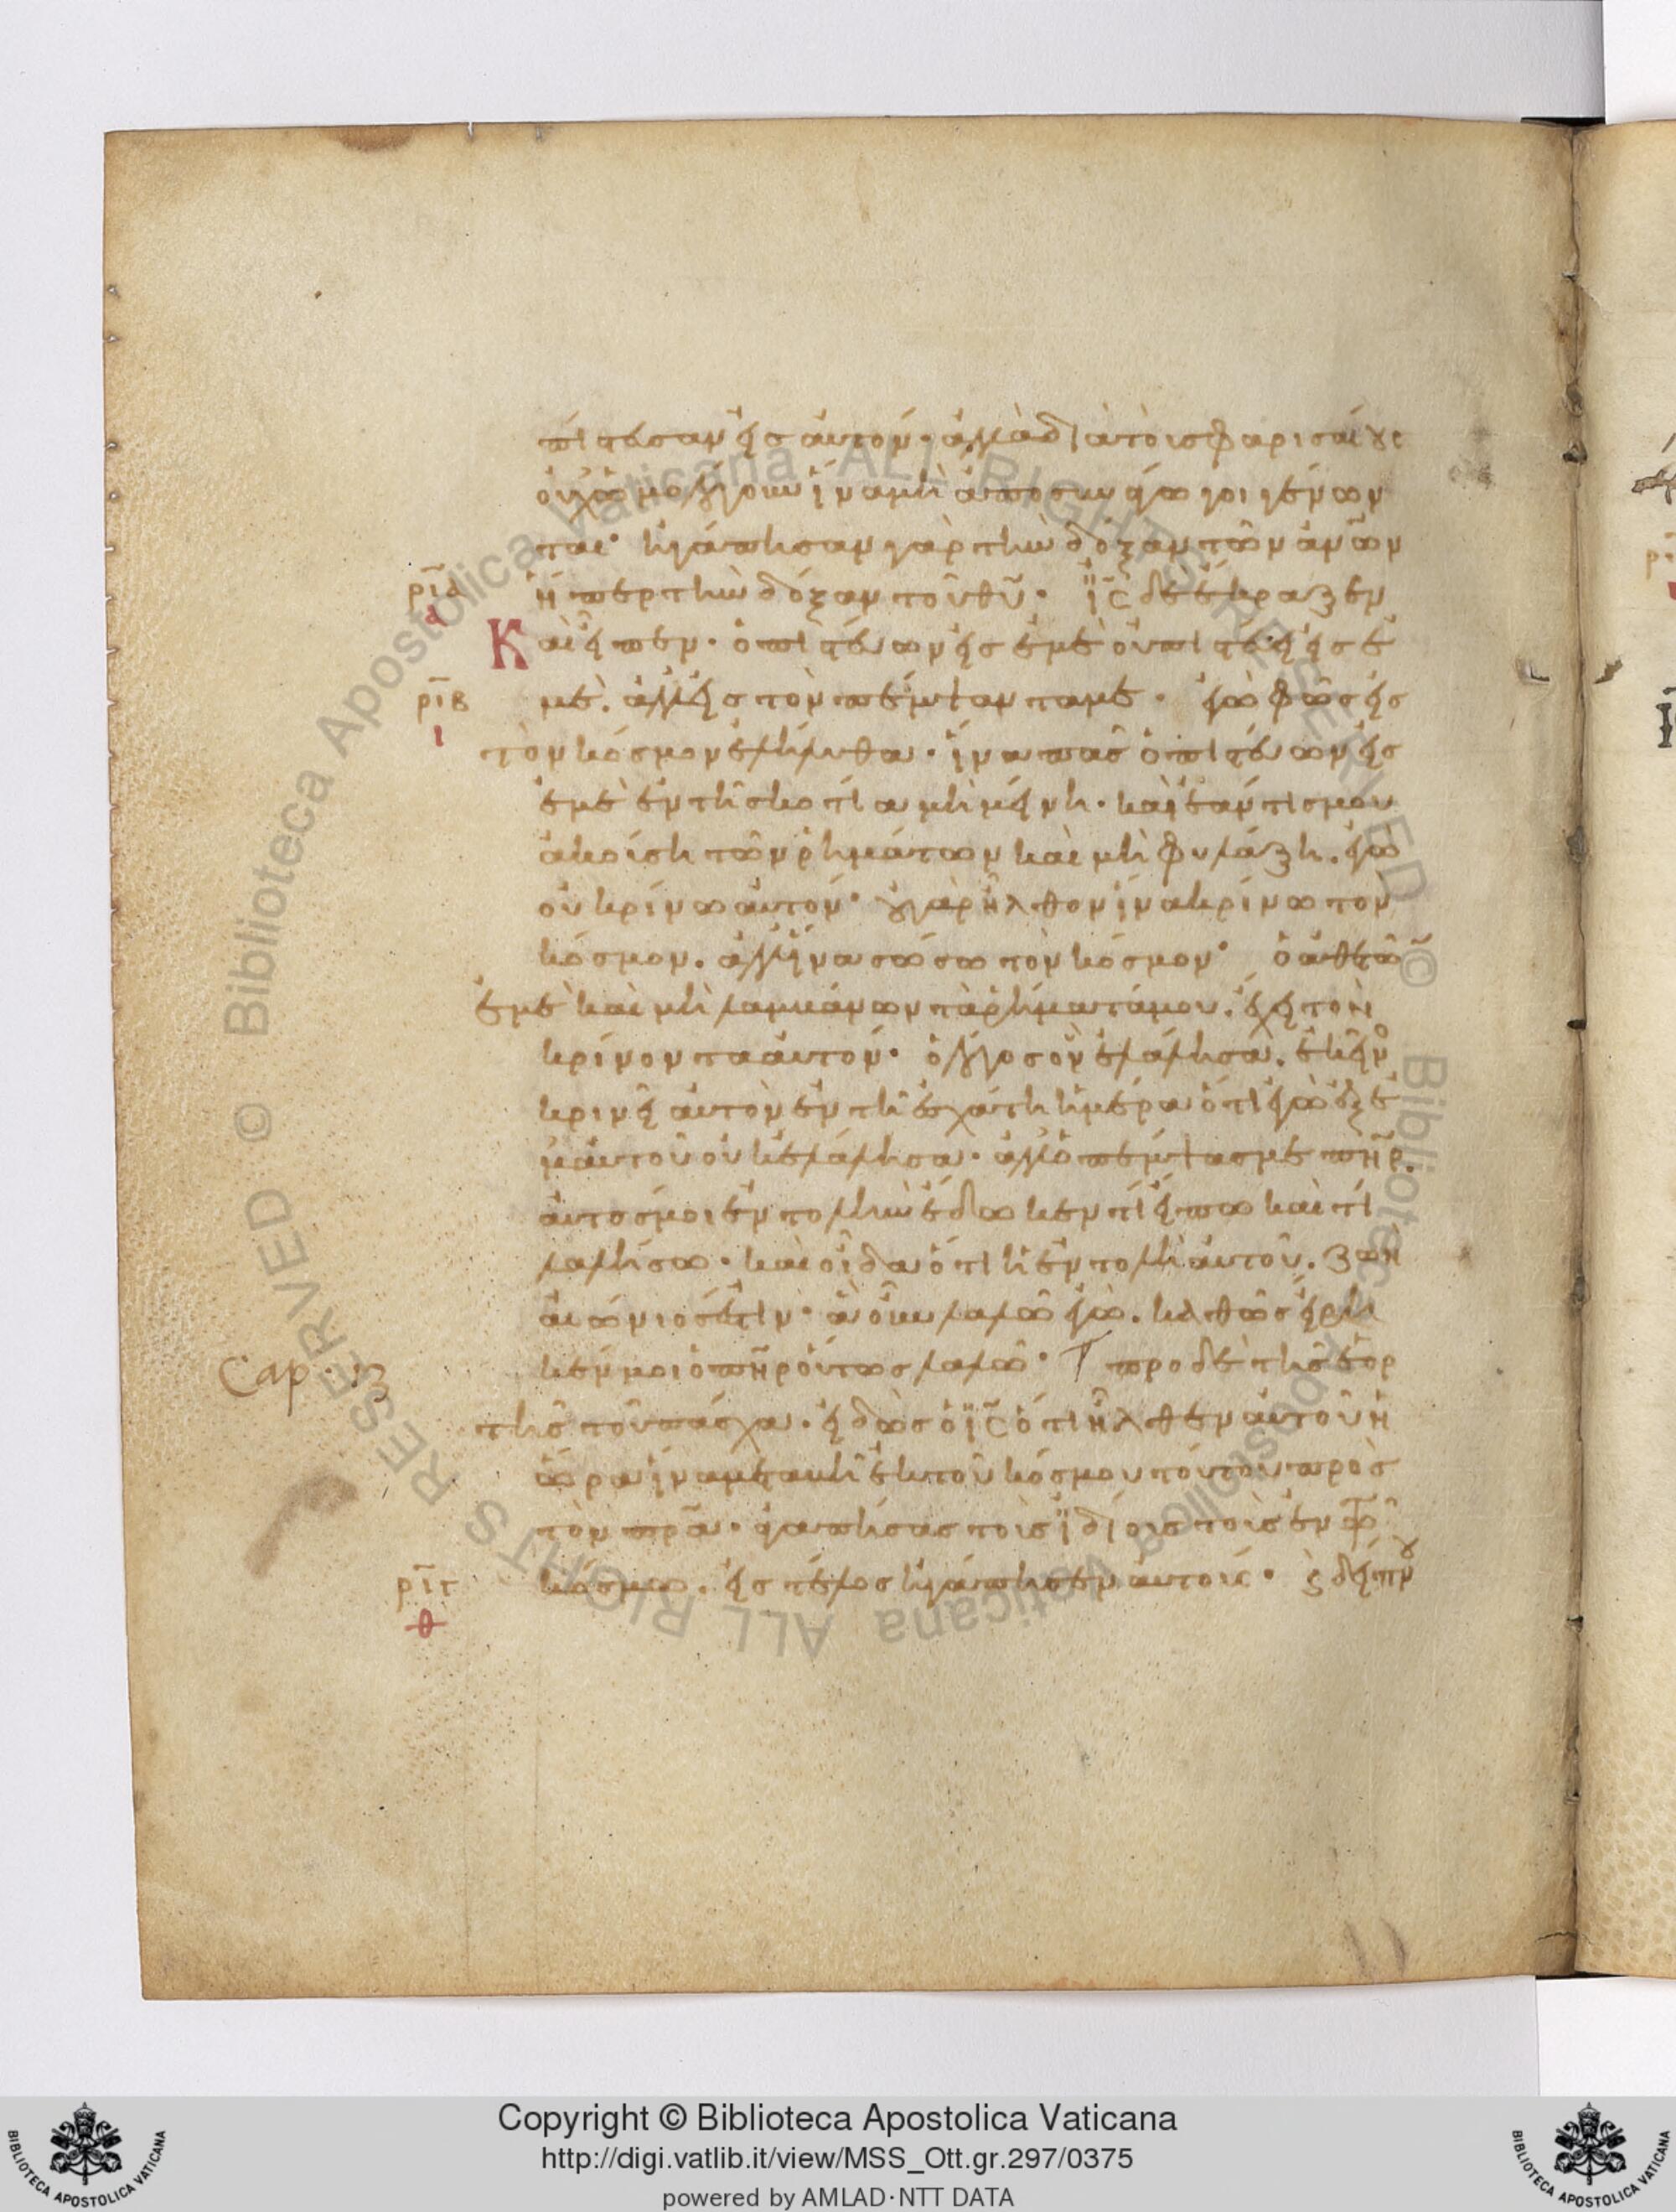 πίστευσαν εἰς αὐτόν· ἀλλὰ διὰ τοὺς φαρισαίους
οὐχ ὡμολόγουν ἵνα μὴ ἀποσυνάγωγοι γένων
ται· ἠγάπησαν γὰρ τὴν δόξαν τῶν ἀν̅ων
ἤπερ τὴν δόξαν τοῦ θ̅υ· ι̅ς δὲ ἔκραξεν
ρ̅ι̅α
α
Καὶ εἶπεν· ὁ πιστεύων εἰς ἐμὲ οὐ πιστεύει εἰς ἐ
ρ̅ι̅β
ι
μὲ. ἀλλ' εἰς τὸν πέμψαντα με· ἐγὼ φῶς εἰς
τὸν κόσμον ἐλήλυθα· ἵνα πᾶς ὁ πιστεύων εἰς
ἐμὲ ἐν τῇ σκοτία μὴ μείνη· καὶ ἐάν τις μου
ἀκούση τῶν ῥημάτων καὶ μὴ φυλάξη. ἐγὼ
οὐ κρίνω αὐτόν· οὐ γὰρ ἦλθον ἵνα κρίνω τὸν
κόσμον. ἀλλ' ἵνα σώσω τὸν κόσμον· ὁ ἀθετῶν
ἐμὲ καὶ μὴ λαμβάνων τὰ ῥήματά μου. ἔχει τὸν
κρίνοντα αὐτόν· ὁ λόγος ὃν ἐλάλησα. ἐκεῖνος
κρινεῖ αὐτὸν ἐν τῇ ἐσχάτη ἡμέρα ὅτι ἐγὼ ἐξ ἐ
μαυτοῦ οὐκ ἐλάλησα· ἀλλ' ὁ πέμψας με π̅η̅ρ.
αὐτός μοι ἐντολὴν ἔδωκεν τί εἴπω καὶ τί
λαλήσω· καὶ οἶδα ὅτι ἡ ἐντολὴ αὐτοῦ. ζωὴ
αἰώνιός ἐστιν· ἃ οὖν λαλῶ ἐγὼ. καθὼς εἴρη
κεν μοι ὁ π̅η̅ρ οὕτως λαλῶ· πρὸ δὲ τῆς ἑορ
Cap. 13
τῆς τοῦ πάσχα. εἰδὼς ὁ ι̅ς ὅτι ἦλθεν αὐτοῦ ἡ
ὥρα ἵνα μεταβῇ ἐκ τοῦ κόσμου τούτου πρὸς
τὸν π̅ρ̅α· ἀγαπήσας τοὺς ἰδίους τοὺς ἐν τῷ
κόσμω. εἰς τέλος ἠγάπησεν αὐτούς· καὶ δείπνου
ρ̅ι̅γ
θ
Copyright © Biblioteca Apostolica Vaticana
http://digi.vatlib.it/view/MSS_Ott.gr.297/0375
powered by AMLAD·NTT DATA